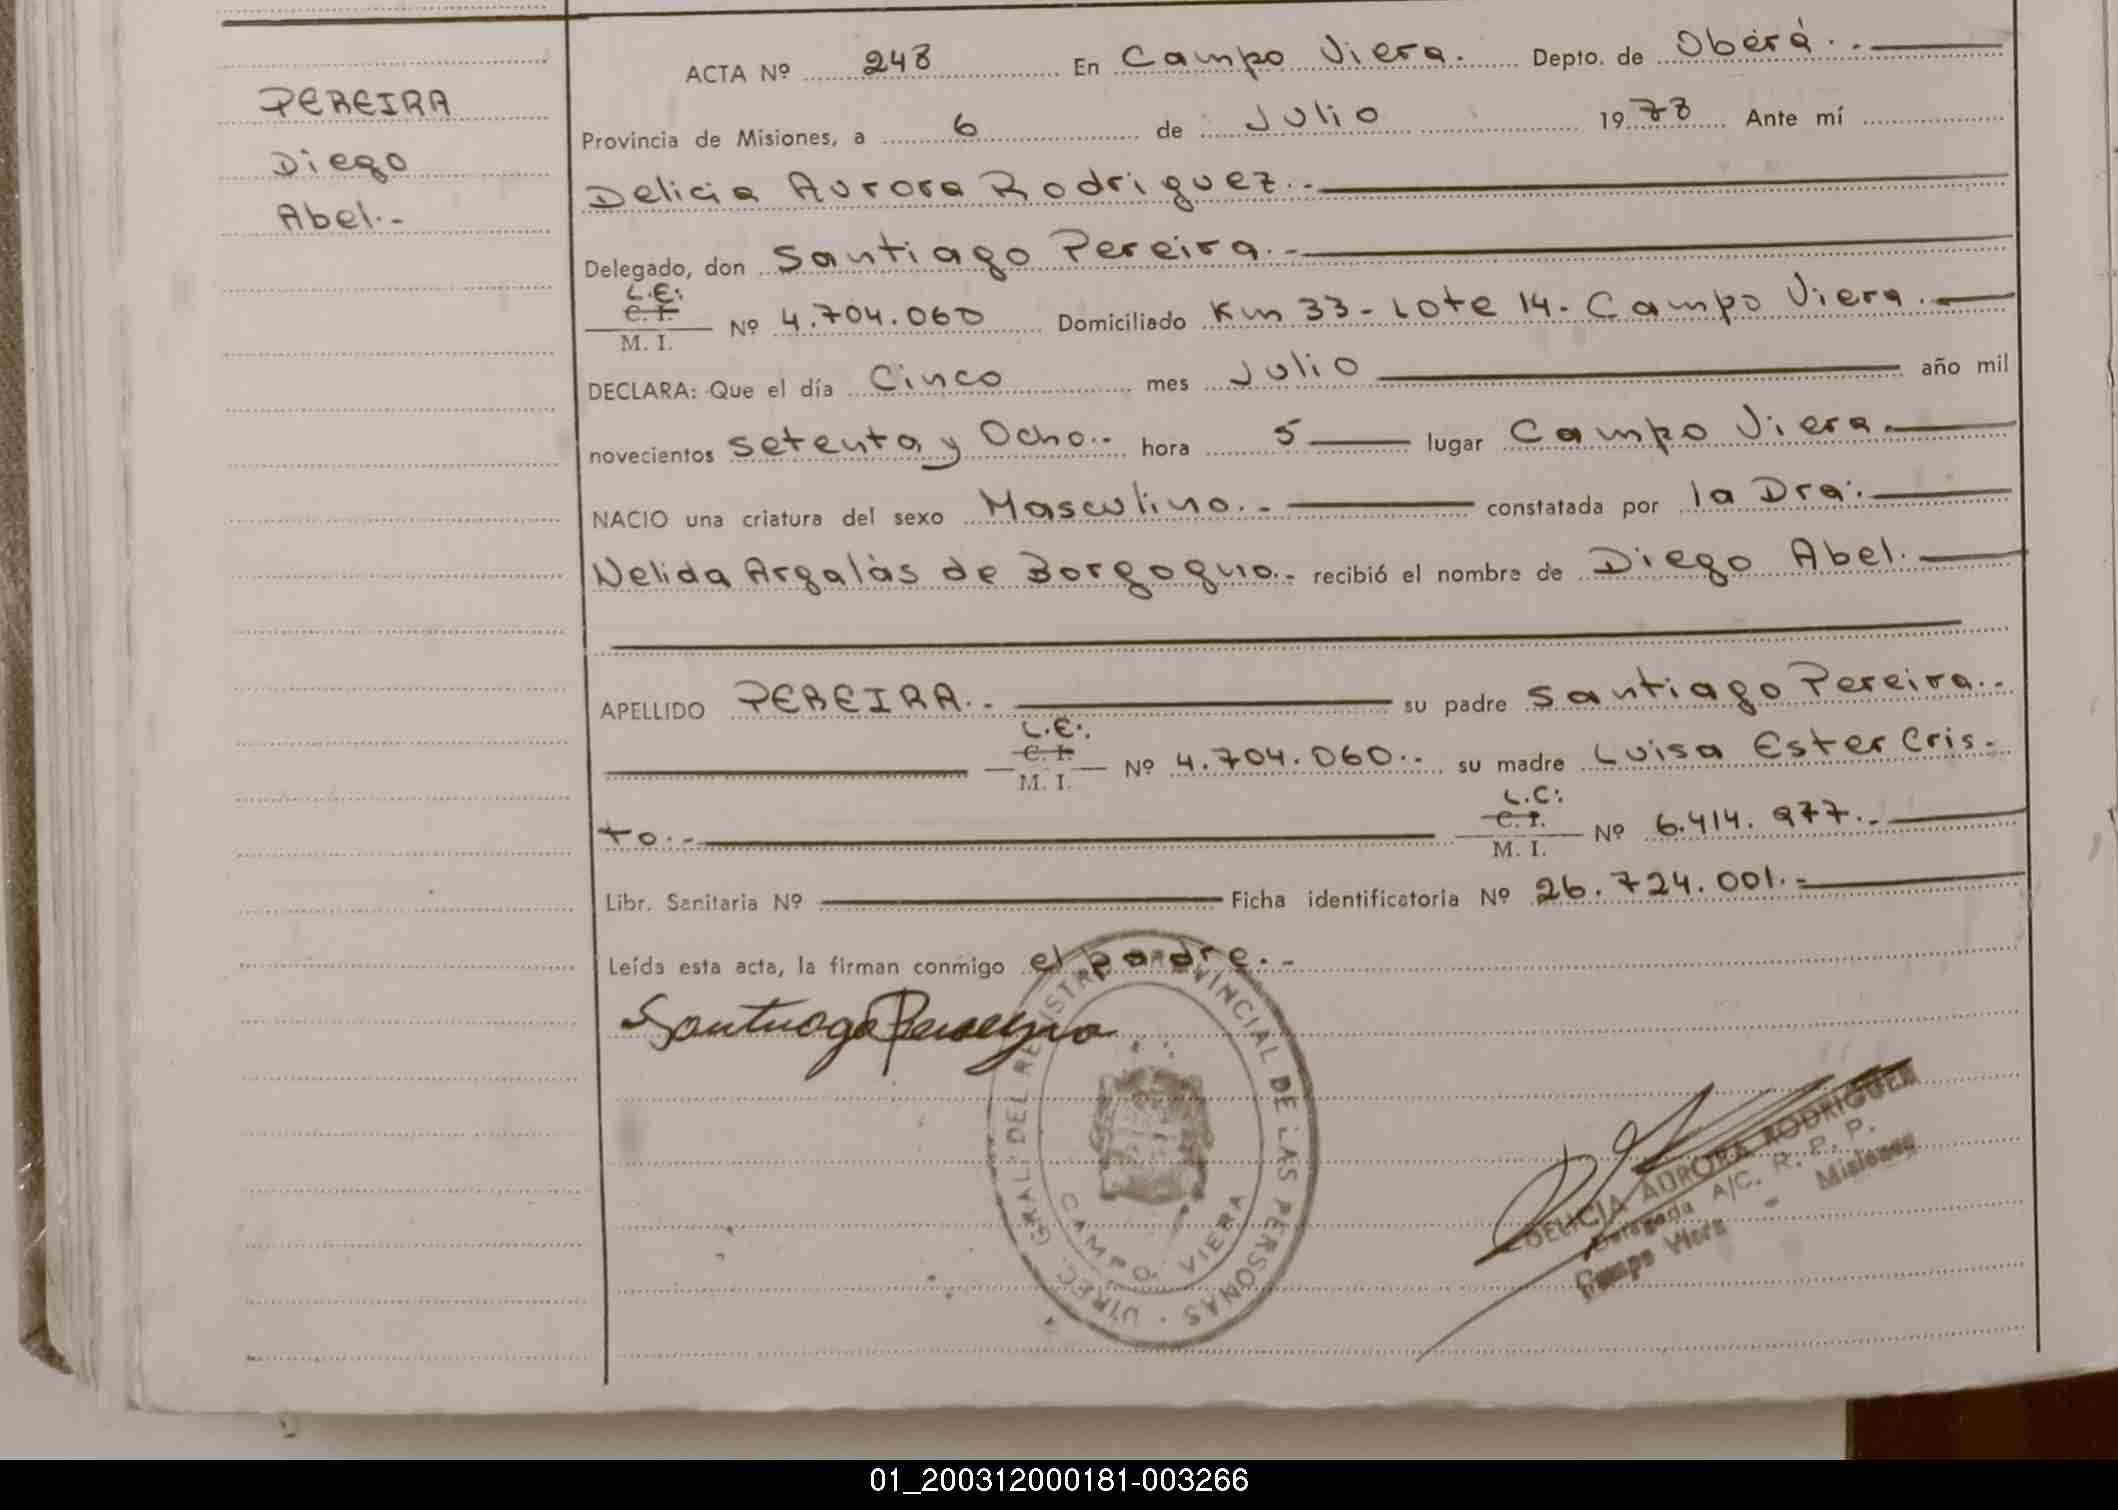 PEREIRA
Diego
Abel.-
ACTA Nº 248 En Campo Viera. Depto. de Oberá.-
Provincia de Misiones, a 6 de Julio 1978 Ante mí
Delicia Aurora Rodriguez.-
Delegado, don Santiago Pereira.-
L.E:
C. I.
M. I.
Nº 4.704.060 Domiciliado Km 33- Lote 14- Campo Viera.-
DECLARA: Que el día Cinco mes Julio año mil
novecientos setenta y Ocho.- hora 5 lugar Campo Viera.-
NACIO una criatura del sexo Masculino.- constatada por la Dra.
Nelida Argalás de Borgogno.- recibió el nombre de Diego Abel.-
APELLIDO PEREIRA.- su padre Santiago Pereira.-
L.E:
C. I.
M. I.
Nº 4.704.060.- su madre Luisa Ester Cris-
to.-
L.C:
C. I.
M. I.
Nº 6.414.977.-
Libr. Sanitaria Nº Ficha identificatoria Nº 26.724.001.-
Leída esta acta, la firman conmigo el padre.-
Santiago Pereyra
DIREC. GRAL. DEL REGISTRO PROVINCIAL DE LAS PERSONAS
CAMPO VIERA
DELICIA AURORA RODRIGUEZ
Delegada A/C. R. P. P.
Campo Viera - Misiones
01_200312000181-003266